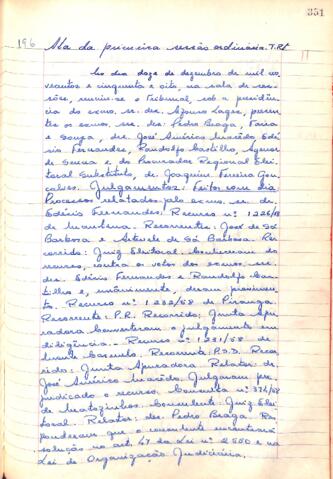 351
196 Ata da primeira sessão ordinária. T.R.E
Ao dia doze de dezembro de mil no-
vecentos e cinquenta e oito, na sala de ses-
sões, reuniu-se o Tribunal, sob a presidên-
cia do exmo. sr. des. Afonso Lages, presen-
tes os exmos. srs. des. Pedro Braga, Faria
e Souza, drs. José Américo Macêdo, Edé-
sio Fernandes, Randolfo Castilho, Agenor
de Senra e do Procurador Regional Elei-
toral Substituto, dr. Joaquim Ferreira Gon-
çalves. Julgamentos: Feitos com dia
Processos relatados pelo exmo. sr. dr.
Edésio Fernandes: Recurso nº 1226/58
de Recorrentes: José de Sá
Barbosa e de Sá Barbosa. Re-
corrido: Juiz Eleitoral. Conheceram do
recurso, contra o voto dos exmos. srs.
drs. Edésio Fernandes e Randolfo Cas-
tilho e, unânimemente, deram provimen-
to. Recurso nº 1232/58 de Piranga.
Recorrente: P.R. Recorrido: Junta Apu-
radora Converteram o julgamento em
diligência. - Recurso nº 1251/58 de
Monte Carmelo. Recorrente: P.S.D. Recor-
rido: Junta Apuradora Relator: dr.
José Américo Macêdo. Julgaram pre-
judicado o recurso. Consulta nº 374/58
de Matozinhos. Consulente: Juiz Elei-
toral. Relator: des. Pedro Braga. Res-
ponderam que o consulente encontrará
solução no art. 47 da Lei nº 2550 e na
Lei de Organização Judiciária.